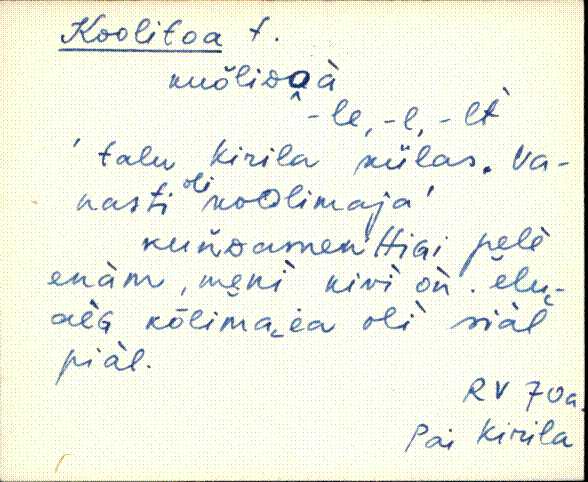 Koolitoa t.
kuõlid̮oà
-le, -l, -lt̀
' talu Kirila külas. Va-
nasti oli koolimaja'
kuǹdamenttigi pelè
enäm, meni kivi òn. ëlu-
aèG kõlimaea oli siäl
piäl.
RV 70a.
Pai Kirila